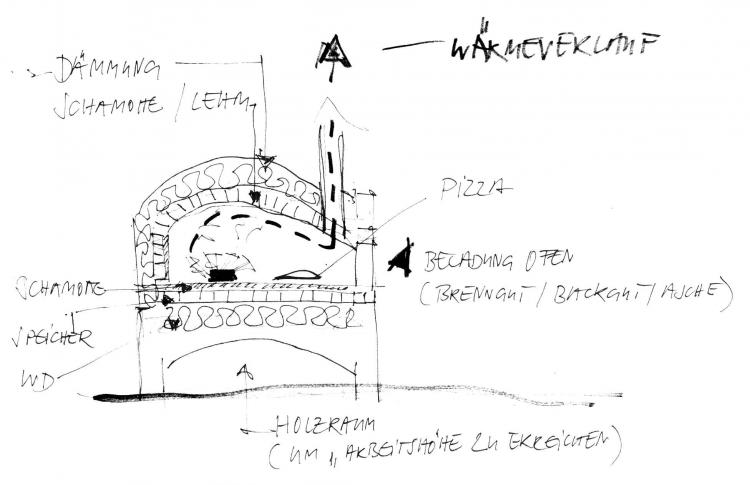 WÄRMEVERLAUF
DÄMMUNG
SCHAMOTTE / LEHM
PIZZA
BELADUNG OFEN
(BRENNGUT / BACKGUT / ASCHE)
SCHAMOTTE
SPEICHER
WD
HOLZRAUM
(UM „ARBEITSHÖHE ZU ERREICHEN)